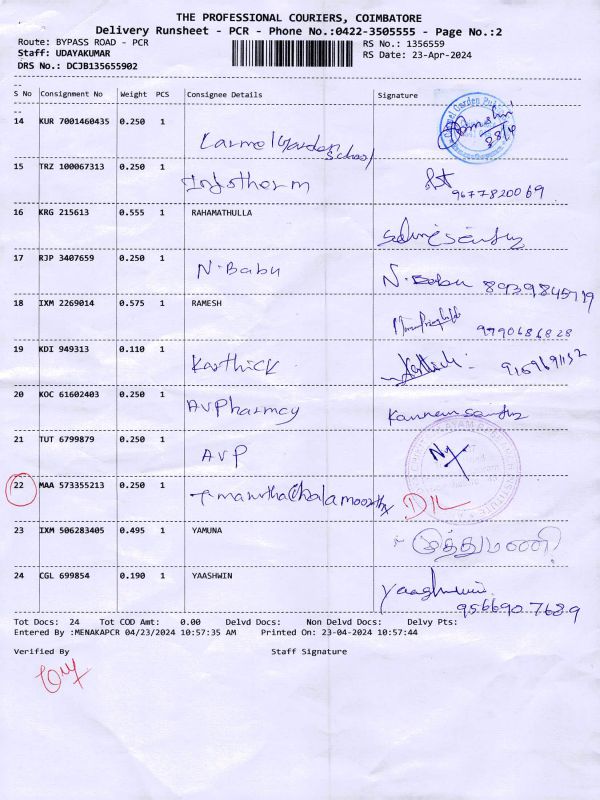 THE PROFESSIONAL COURIERS, COIMBATORE
Delivery Runsheet - PCR - Phone No.:0422-3505555 - Page No.:2
Route: BYPASS ROAD - PCR RS No.: 1356559
Staff: UDAYAKUMAR RS Date: 23-Apr-2024
DRS No.: DCJB135655902
S No Consignment No Weight PCS Consignee Details Signature
14 KUR 7001460435 0.250 1 Karmel Garden School
15 TRZ 100067313 0.250 1 9677820069
16 KRG 215613 0.555 1 RAHAMATHULLA
17 RJP 3407659 0.250 1 N. Babu N. Babu 8939845719
18 IXM 2269014 0.575 1 RAMESH 9790686828
19 KDI 949313 0.110 1 Karthick Karthick
20 KOC 61602403 0.250 1 AVPharmcy
21 TUT 6799879 0.250 1 AVP
22 MAA 573355213 0.250 1 D/L
23 IXM 506283405 0.495 1 YAMUNA முத்துமணி
24 CGL 699854 0.190 1 YAASHWIN Yaashwin
9566907689
Tot Docs: 24 Tot COD Amt: 0.00 Delvd Docs: Non Delvd Docs: Delvy Pts:
Entered By :MENAKAPCR 04/23/2024 10:57:35 AM Printed On: 23-04-2024 10:57:44
Verified By Staff Signature